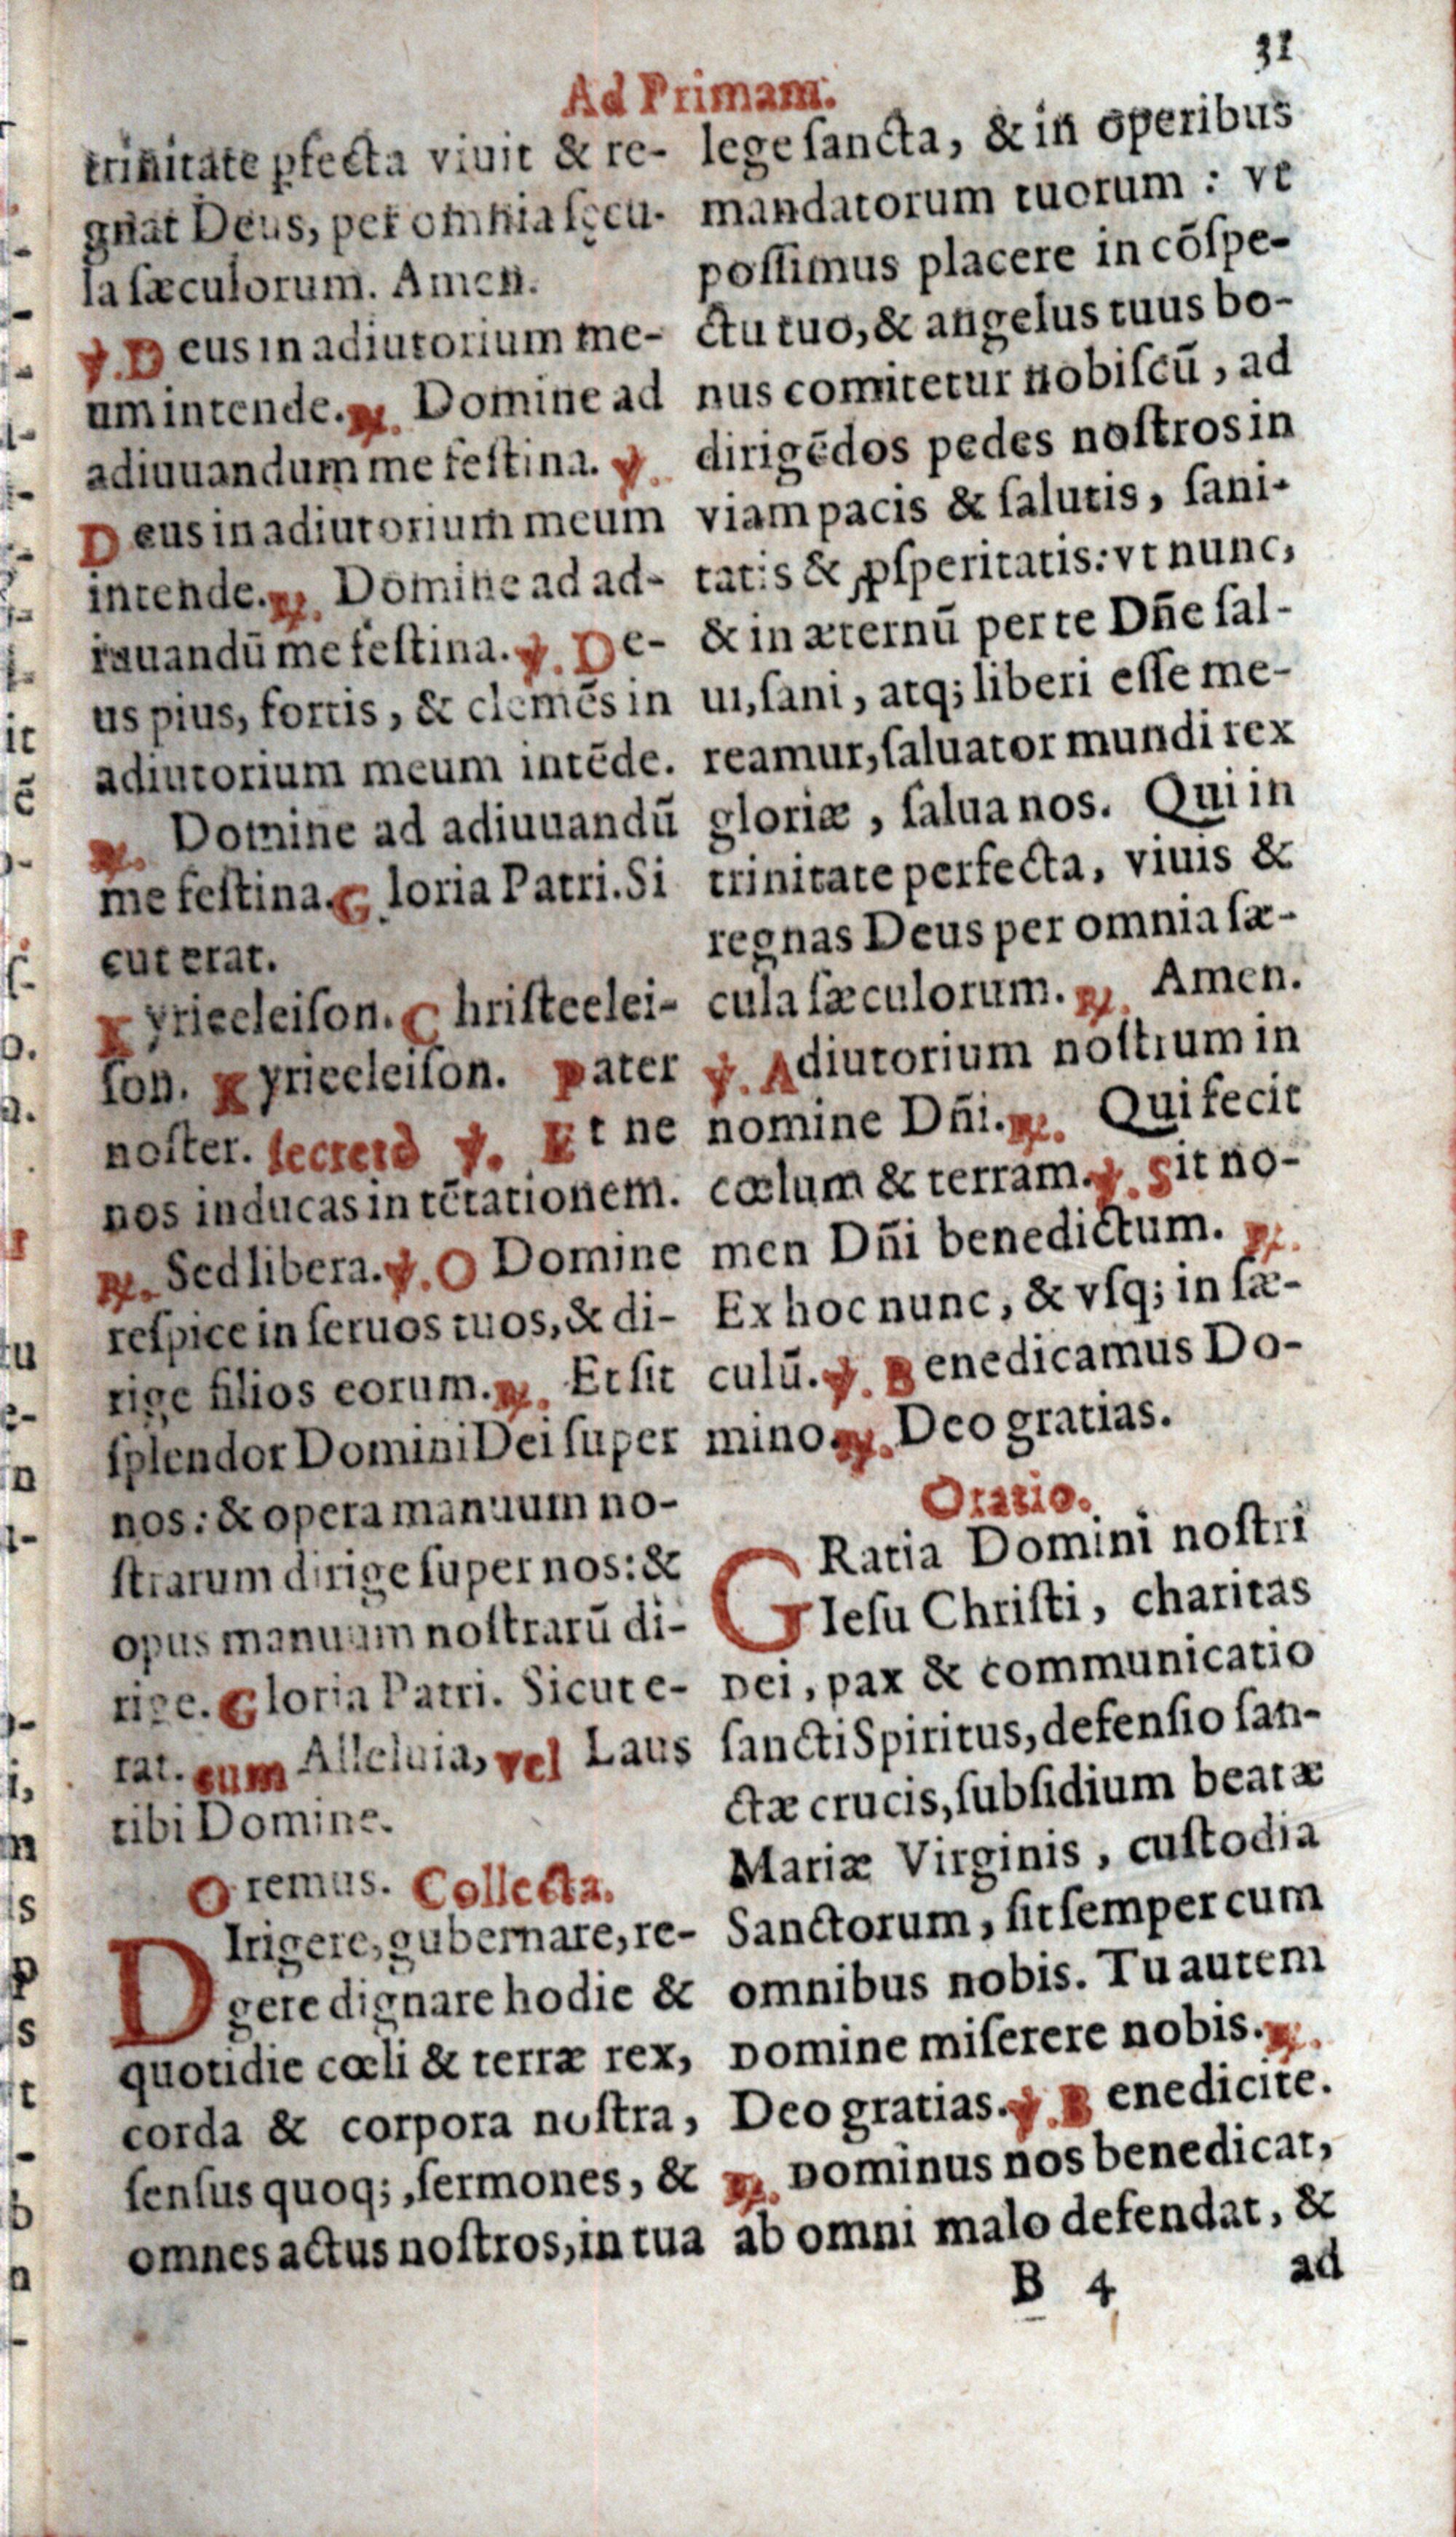 31
Ad Primam.
trinitate ꝑfecta viuit & re-
gnat Deus, per omnia sęcu-
la sæculorum. Amen.
℣. Deus in adiutorium me-
um intende. ℟. Domine ad
adiuuandum me festina. ℣.
Deus in adiutorium meum
intende. ℟. Domine ad ad-
iuuandū me festina. ℣. De-
us pius, fortis, & clemēs in
adiutorium meum intēde.
℟. Domine ad adiuuandū
me festina. Gloria Patri. Si
cut erat.
Kyrieeleiſon. Chriſteelei-
ſon. Kyrieeleiſon. Pater
noſter. ſecretò ℣. Et ne
nos inducas in tētationem.
℟. Sed libera. ℣. O Domine
reſpice in ſeruos tuos, & di-
rige filios eorum. ℟. Et ſit
ſplendor Domini Dei ſuper
nos: & opera manuum no-
ſtrarum dirige ſuper nos: &
opus manuum noſtrarū di-
rige. Gloria Patri. Sicut e-
rat. cum Alleluia, vel Laus
tibi Domine.
Oremus. Collecta.
DIrigere, gubernare, re-
gere dignare hodie &
quotidie cœli & terræ rex,
corda & corpora noſtra,
ſenſus quoq;, ſermones, &
omnes actus noſtros, in tua
lege ſancta, & in operibus
mandatorum tuorum : vt
poſſimus placere in cōſpe-
ctu tuo, & angelus tuus bo-
nus comitetur nobiſcū, ad
dirigēdos pedes noſtros in
viam pacis & ſalutis, ſani-
tatis & ꝓſperitatis: vt nunc,
& in æternū per te Dñe ſal-
ui, ſani, atq; liberi eſſe me-
reamur, ſaluator mundi rex
gloriæ, ſalua nos. Qui in
trinitate perfecta, viuis &
regnas Deus per omnia ſæ-
cula ſæculorum. ℟. Amen.
℣. Adiutorium noſtrum in
nomine Dñi. ℟. Qui fecit
cœlum & terram. ℣. Sit no-
men Dñi benedictum. ℟.
Ex hoc nunc, & vſq; in ſæ-
culū. ℣. Benedicamus Do-
mino. ℟. Deo gratias.
Oratio.
GRatia Domini noſtri
Ieſu Chriſti, charitas
Dei, pax & communicatio
ſancti Spiritus, defenſio ſan-
ctæ crucis, ſubſidium beatæ
Mariæ Virginis, cuſtodia
Sanctorum, ſit ſemper cum
omnibus nobis. Tu autem
Domine miſerere nobis. ℟.
Deo gratias. ℣. Benedicite.
℟. Dominus nos benedicat,
ab omni malo defendat, &
B 4 ad